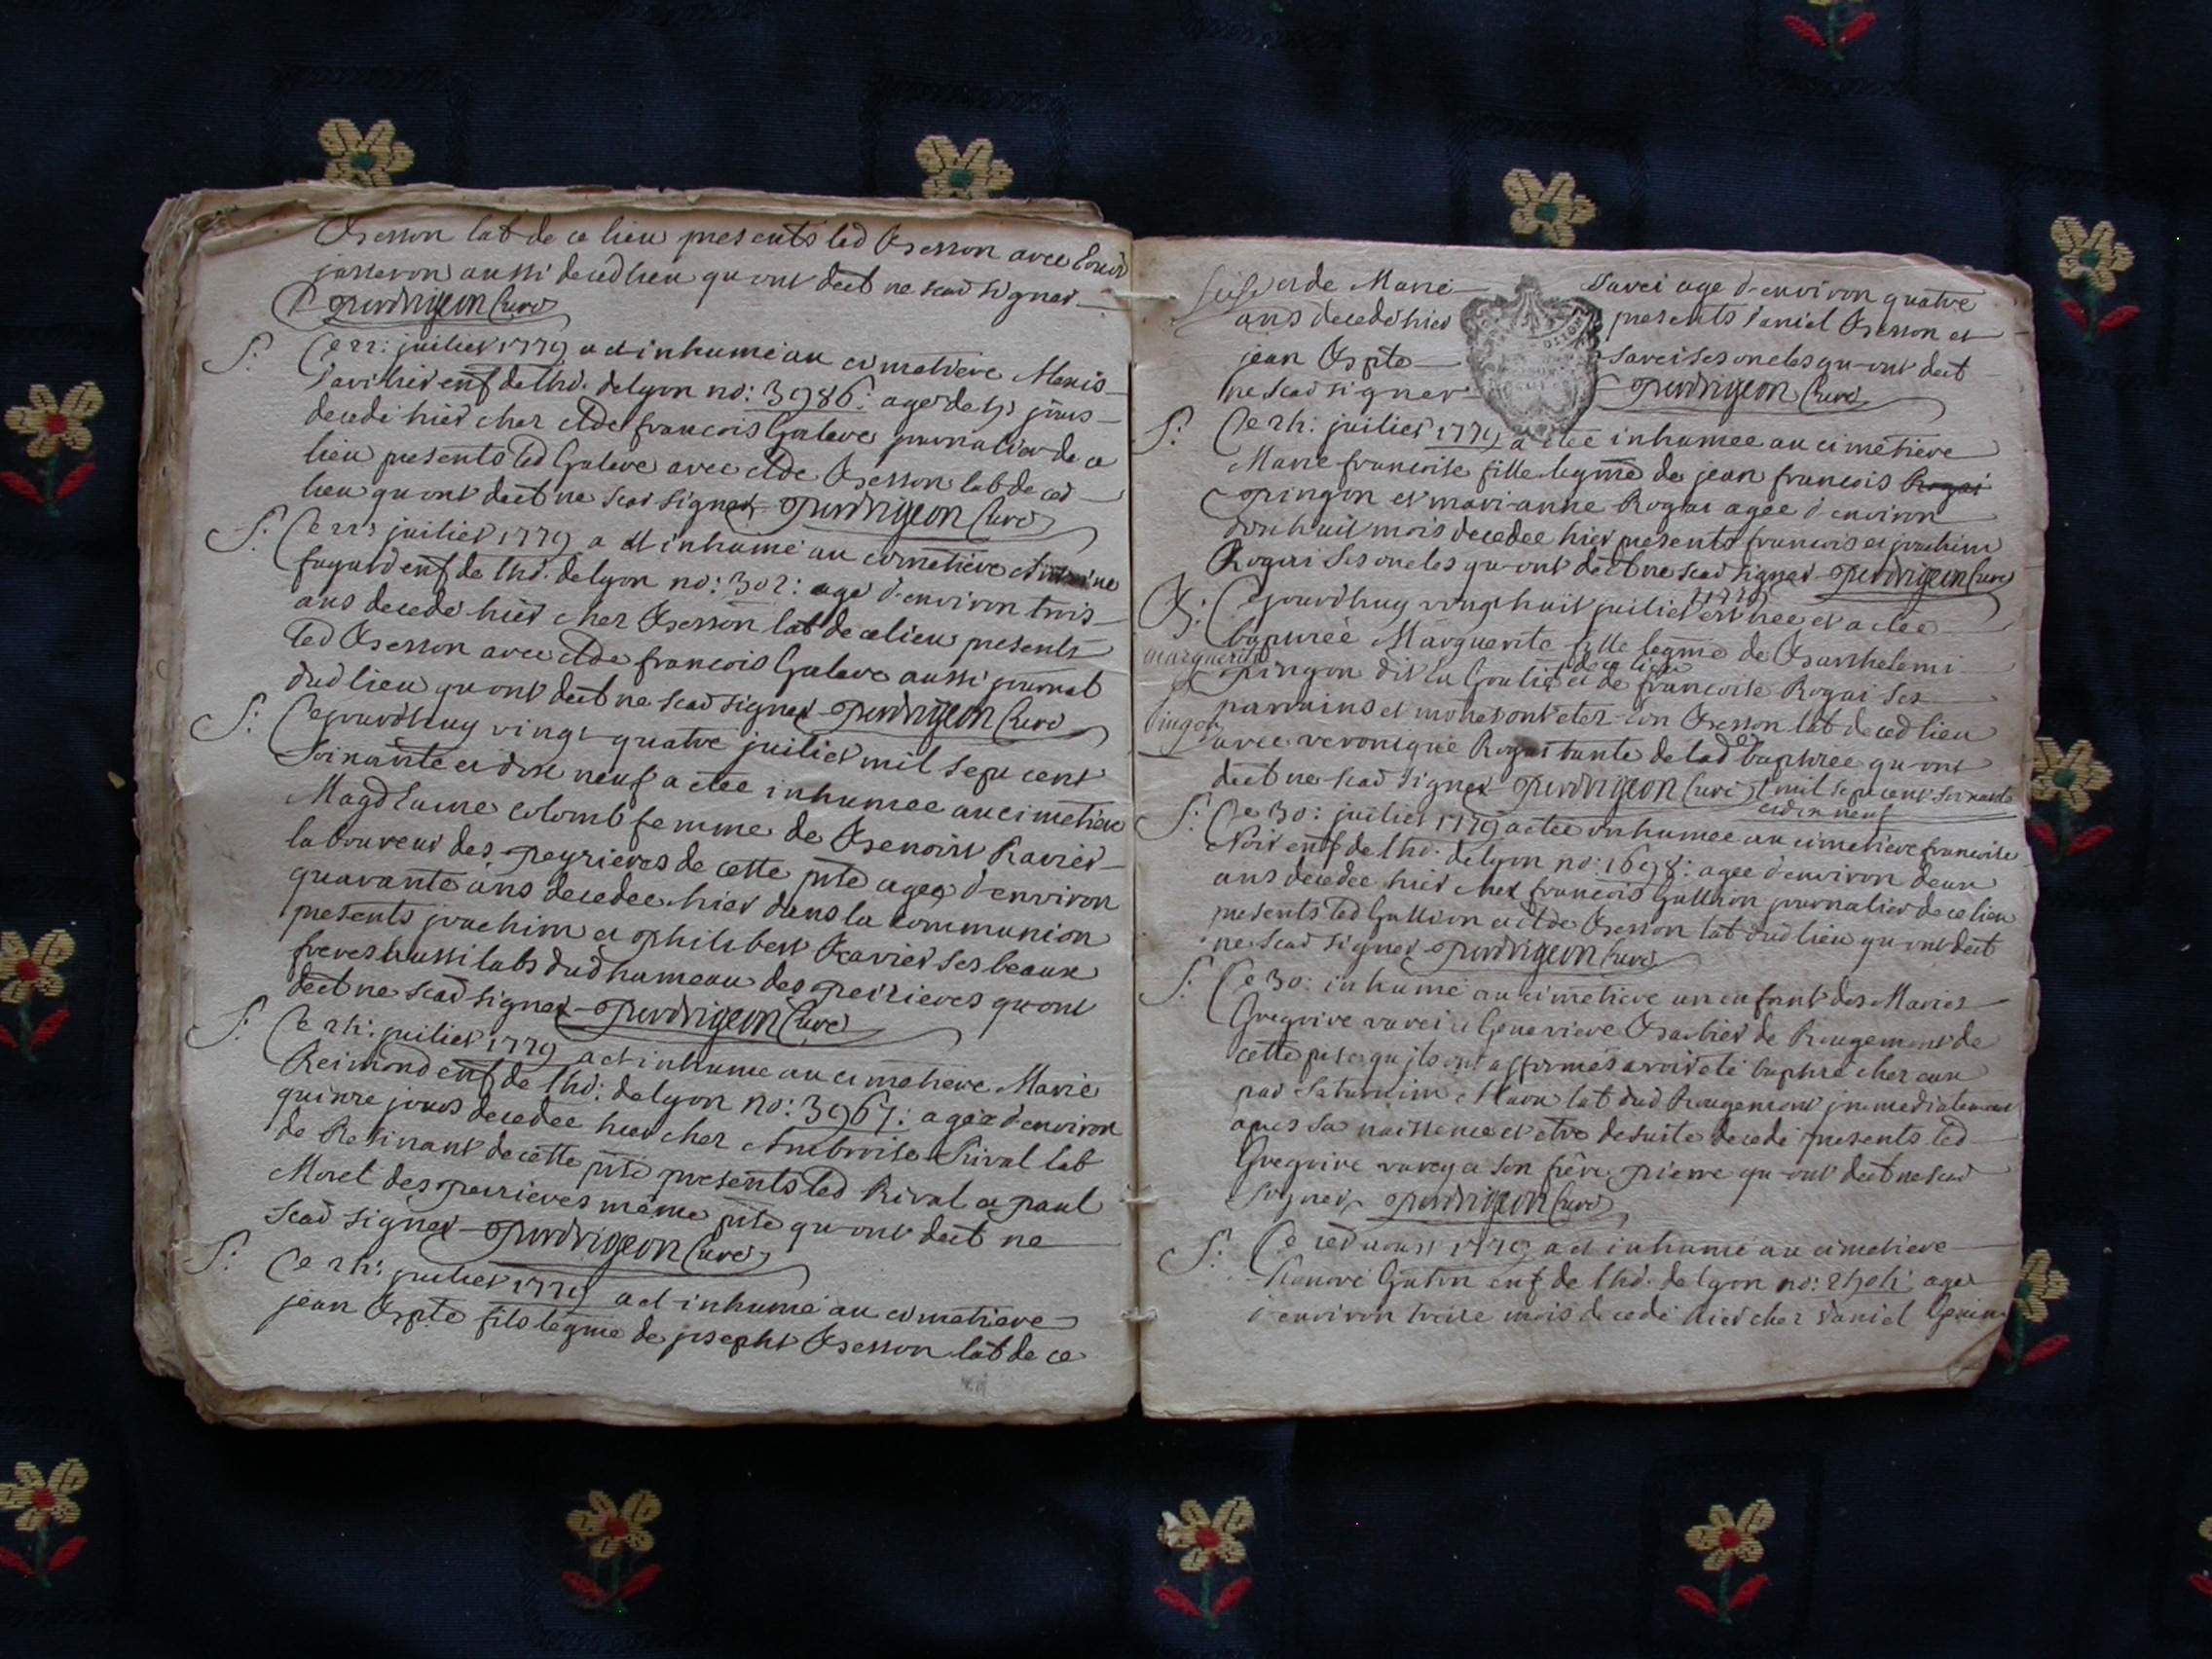 Besson lab de ce lieu presents led Besson avec Louis
josseron aussi decedlieu qu-ont decl ne scav signer
perdrigeon Curé
S: Ce 22: juillet 1779 a et inhumé au cimetiere
enf de lhd. de lyon no: 3986: agé de jours
decedé hier chez François Galave journalier de ce
lieu presents led Galave avec Besson lab de ced
lieu qu-ont decl ne scav signer perdrigeon Curé
S: Ce juillet 1779 a et inhumé au cimetiere
fayard enf de lhd. de lyon no: 302: agé d'environ trois
ans decedé hier chez Besson lab de ce lieu presents
led Besson avec francois Galave aussi journal
dud lieu qu-ont decl ne scav signer perdrigeon Curé
S: Cejourdhuy vingt quatre juillet mil sept cent
soixante et dix neuf a eteé inhumeé au cimetiere
Magdlaine colomb femme de Benoist Ravier
laboureur des peyrieres de cette psse ageé d'environ
quarante ans decedeé hier dans la Communion
presents joachim et philibert Ravier ses beaux
freres aussi labs dud hameau des peirieres qu-ont
decl ne scav signer perdrigeon Curé
S: Ce juillet 1779 a et inhumé au cimetiere Marie
Reimond enf de lhd: de lyon no: 3967: ageé d'environ
quinze jours decedeé hier chez Ambroise Rival lab
de Resinant de cette psse presents led Rival et paul
Moret des peirieres même psse qu-ont decl ne
scav signer perdrigeon Curé
S: Ce juillet 1779 a et inhumé au cimetiere
jean Bpte fils legme de joseph Besson lab de ce
et de Marie Savei agé d'environ quatre
ans decedé hier presents Daniel Besson et
jean Bpte Savei ses oncles qu-ont decl
ne scav signer perdrigeon Curé
S: Ce juillet 1779 a eteé inhumeé au cimetiere
Marie francoise fille legme de jean francois
pingon et mari-anne Rogai ageé d'environ
dix huit mois decedeé hier presents francois et joachim
Rogai ses oncles qu-ont decl ne scav signer perdrigeon Curé
B: Cejourdhuy vingt huit juillet 1779 est neé et a eteé
baptiseé Marguerite fille legme de Barthelemi
marguerite
pingon dit la et de francoise Rogai ses
de ce lieu
pingon
parrains et ont eté Besson lab de ced lieu
avec veronique Rogai tante de lad baptiseé qu-ont
decl ne scav signer perdrigeon Curé mil sept cent soixante
et dix neuf
S: Ce 30: juillet 1779 a eteé inhumeé au cimetiere francoise
Noir enf de lhd: de lyon no: 1698: ageé d'environ deux
ans decedeé hier chez francois Gallion journalier de ce lieu
presents led Gallion et Besson lab dud lieu qu-ont decl
ne scav signer perdrigeon Curé
S: Ce 30: inhumé au cimetiere un enfant des Mariés
Gregoire varei et Genevieve Barbier de Rougemont de
cette psse qu-ils ont affirmés avoir eté baptisé chez eux
par Saturnin lab dud Rougemont jmmediatement
apres sa naissence et etre de suite decedé presents led
Gregoire varey et son frere pierre qu-ont decl ne scav
signer perdrigeon Curé
S: Ce aoust 1779 a et inhumé au cimetiere
Honoré Gatin enf de lhd. de lyon no: agé
d'environ treize mois decedé hier chez Daniel